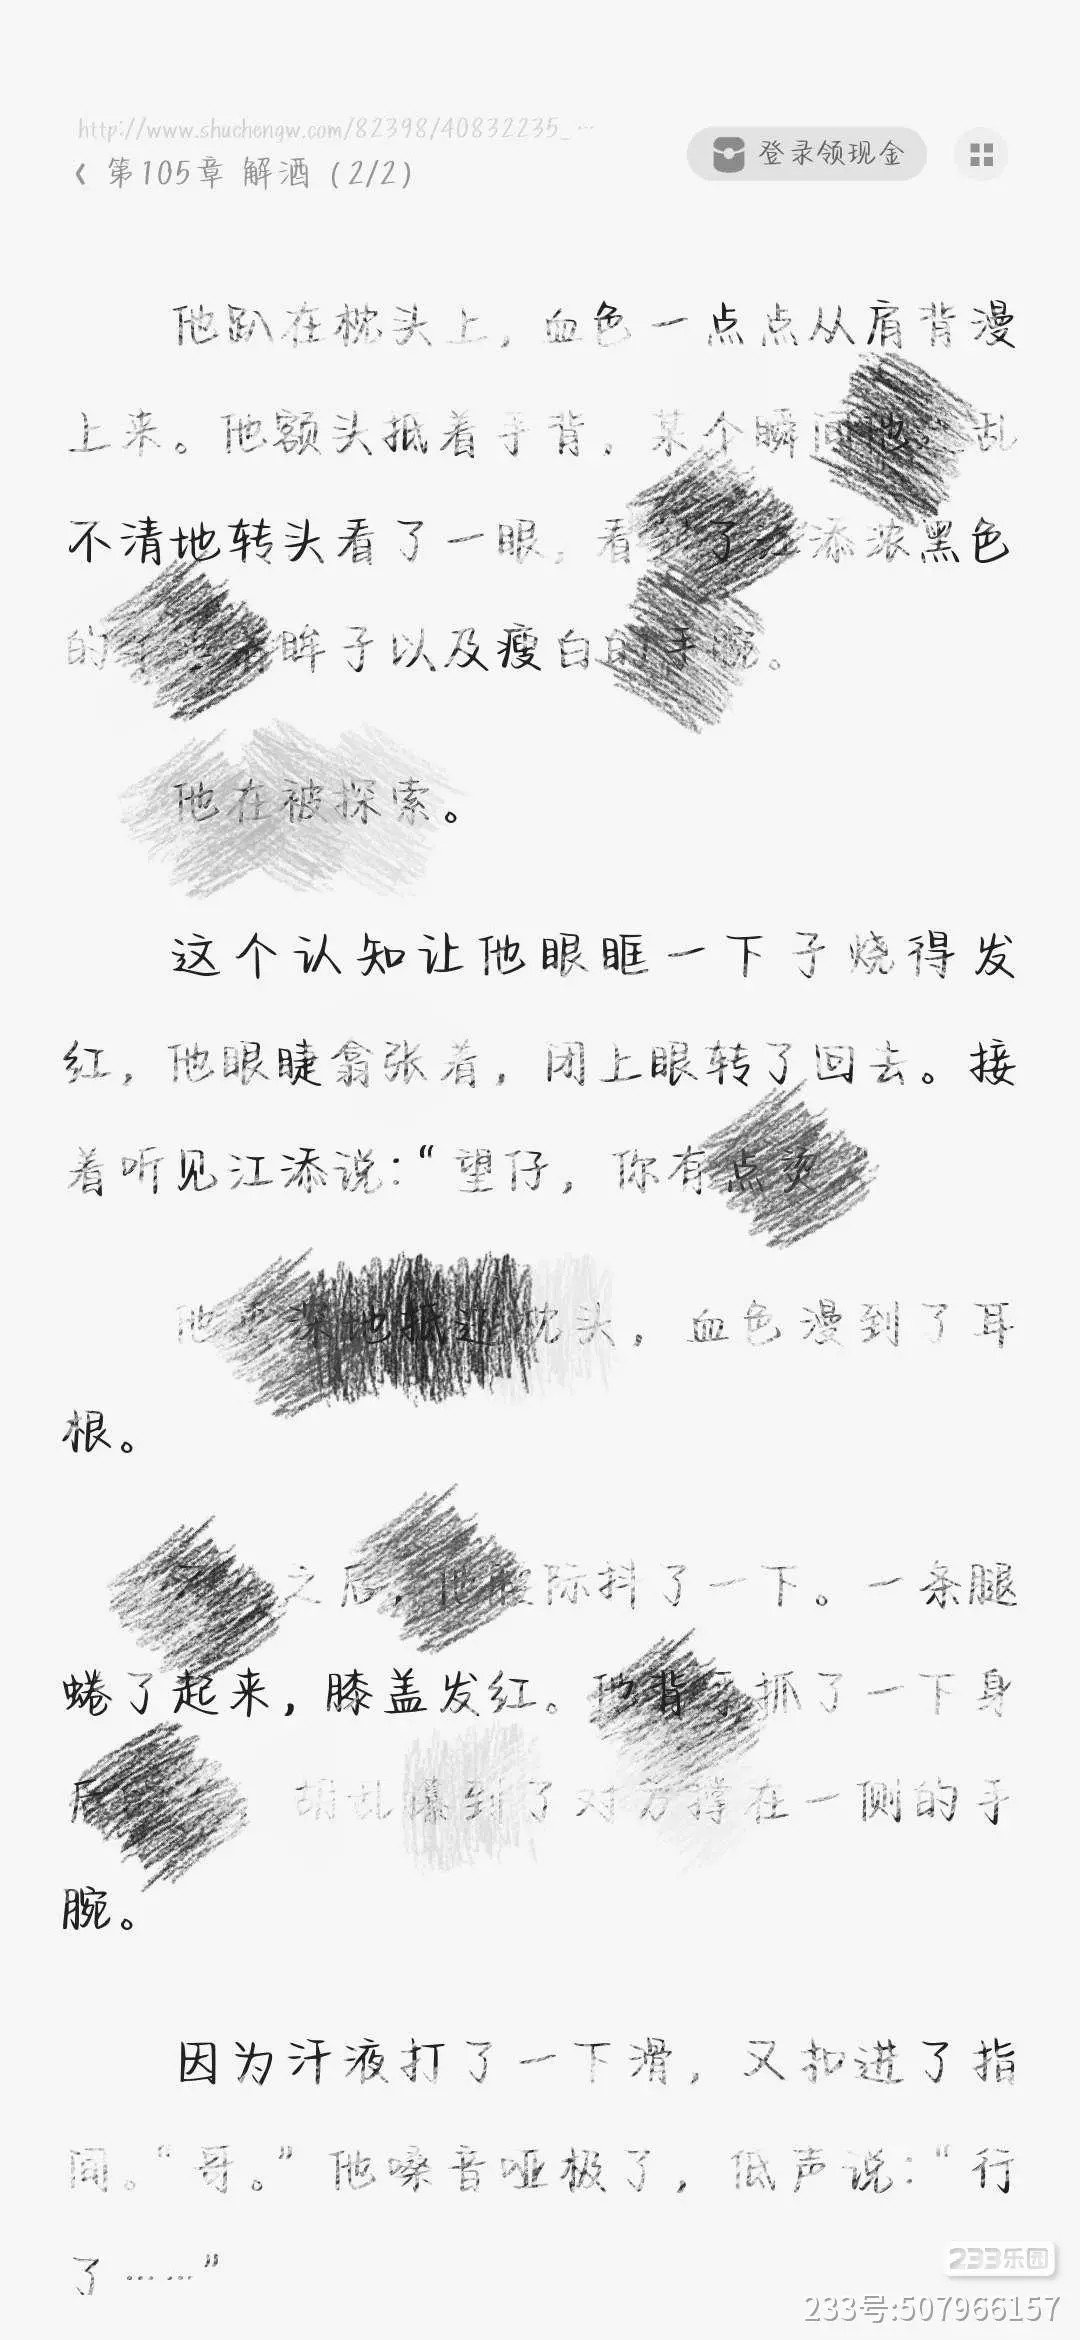 http://www.shuchengw.com/82398/40832235_…
第105章 解酒 (2/2)
登录领现金
他趴在枕头上，血色一点点从肩背漫
上来。他额头抵着手背，某个瞬间他 乱
不清地转头看了一眼，看到了江添浓黑色
的 眸子以及瘦白的手腕。
他在被探索。
这个认知让他眼眶一下子烧得发
红，他眼睫翕张着，闭上眼转了回去。接
着听见江添说：“望仔，你有点烫
他更深地抵进枕头，血色漫到了耳
根。
之后，他 际抖了一下。一条腿
蜷了起来，膝盖发红。他背手抓了一下身
后 胡乱 到了对方撑在一侧的手
腕。
因为汗液打了一下滑，又扣进了指
间。“哥。”他嗓音哑极了，低声说：“行
了……”
233乐园
233号:507966157